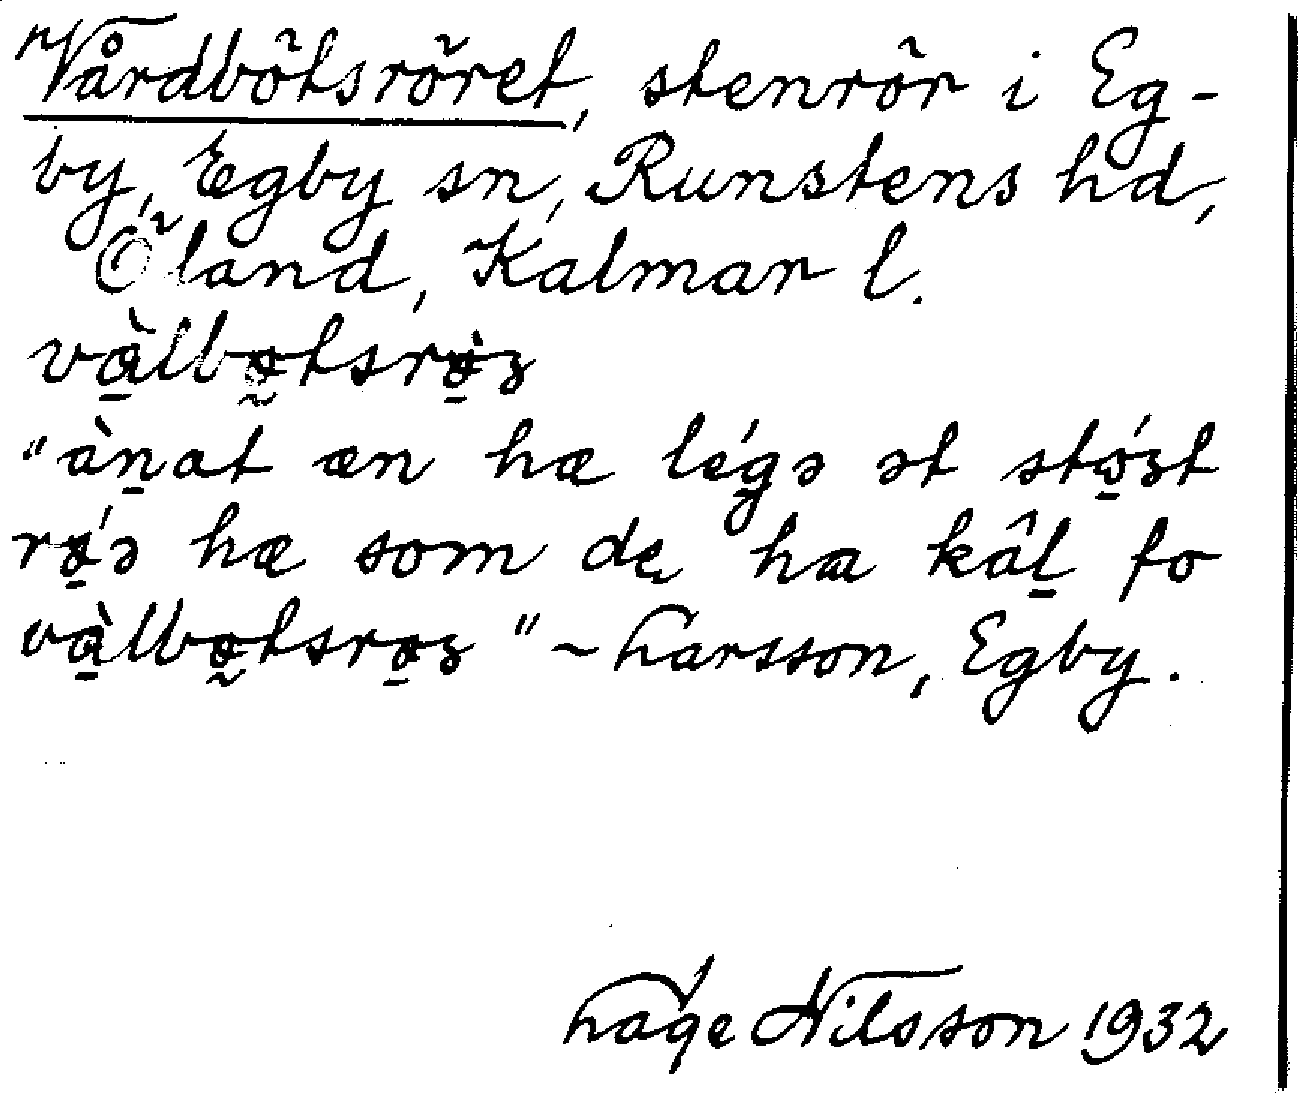 Vårdbötsröret, stenrör i Eg-
by, Egby sn, Runstens hd,
Öland, Kalmar l.
và̱lbø̰tsrø̱̀z
"àn̲at æn hæ lég̲ə ət stǿ̱zt
rǿ̱ə hæ som dę ha kâl̲ fo
và̱lbø̰tsrø̱z" ~ Larsson, Egby.
Lage Nilsson 1932